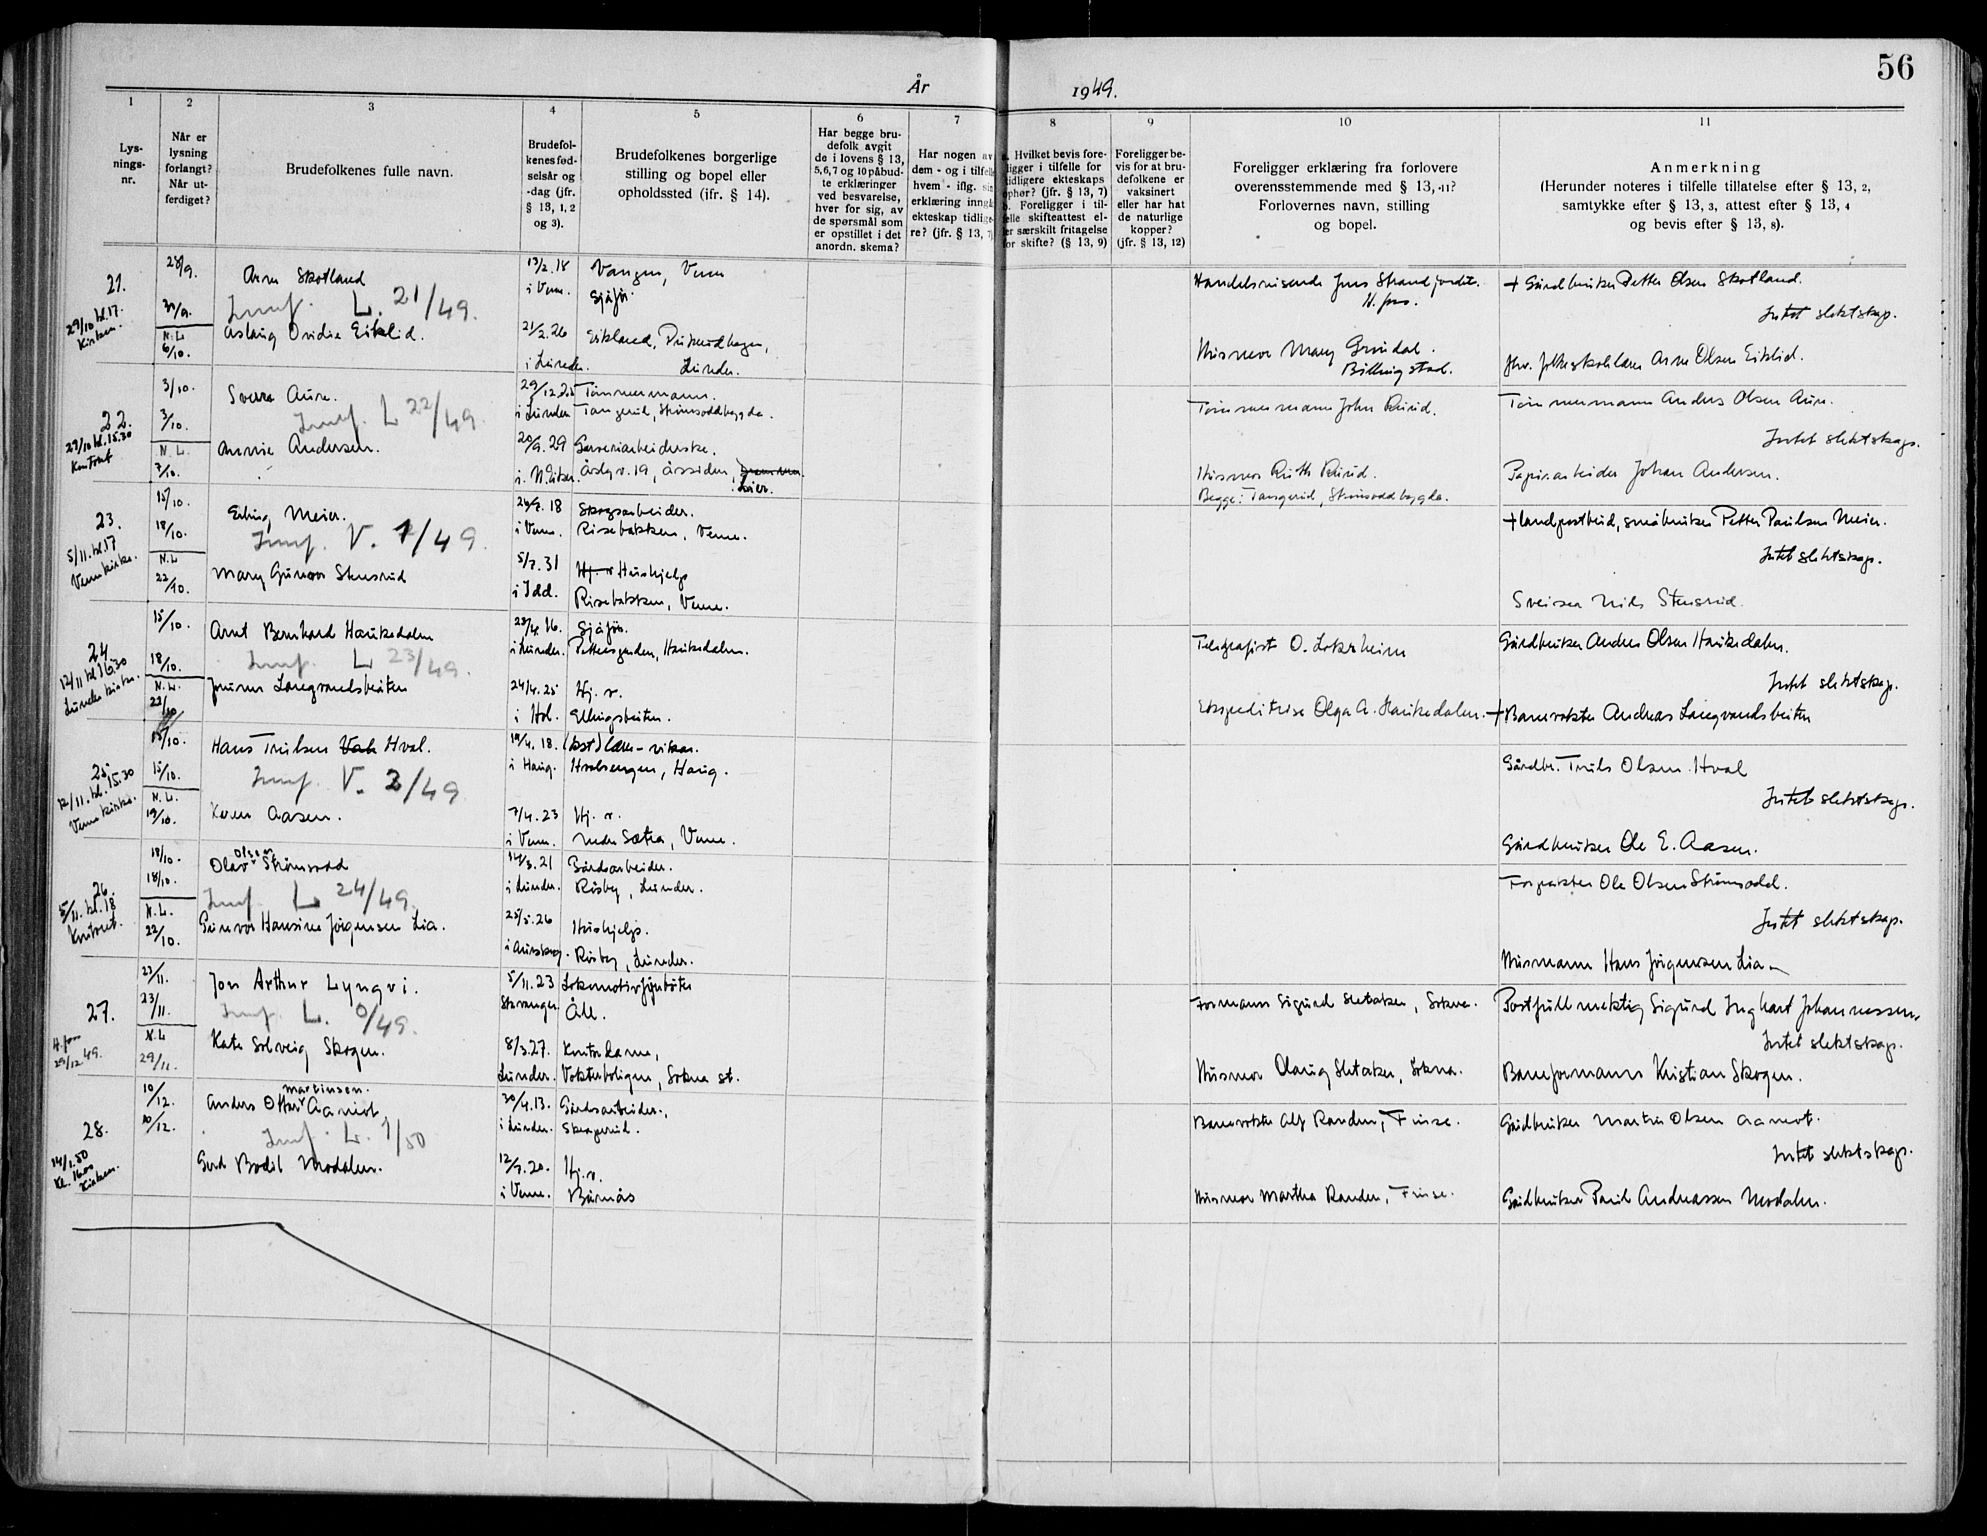 56
År 1949.
1 2 3 4 5 6 7 8 9 10 11
Lys-
nings-
nr.
Når er
lysning
forlangt?
Når ut-
ferdiget?
Brudefolkenes fulle navn.
Brudefol-
kenes fød-
selsår og
-dag (jfr.
§ 13, 1, 2
og 3).
Brudefolkenes borgerlige
stilling og bopel eller
opholdssted (ifr. § 14).
Har begge bru-
defolk avgit
de i lovens § 13,
5,6,7 og 10 påbud-
te erklæringer
ved besvarelse,
hver for sig, av
de spørsmål som
er opstillet i det
anordn. skema?
Har nogen av
dem - og i tilfelle
hvem - iflg. sin
erklæring inngå
ekteskap tidlige-
re? (jfr. § 13, 7)
a. Hvilket bevis fore-
ligger i tilfelle for
tidligere ekteskaps
ophør? (jfr. § 13, 7)
b. Foreligger i til-
felle skifteattest el-
er særskilt fritagelse
for skifte? (§ 13, 9)
Foreligger be-
vis for at bru-
defolkene er
vaksinert
eller har hat
de naturlige
kopper?
(jfr. § 13, 12)
Foreligger erklæring fra forlovere
overensstemmende med § 13, 11?
Forlovernes navn, stilling
og bopel.
Anmerkning
(Herunder noteres i tilfelle tillatelse efter § 13, 2,
samtykke efter § 13, 3, attest efter § 13, 4
og bevis efter § 13, 8).
21.
29/10 kl. 17.
Kirken.
28/9.
30/9.
N.L
6/10.
Arne Skotland
Innf. L. 21/49.
Aslaug Ovidia Eiklid.
13/2.18
i Veme.
Vangen, Veme
Sjåfør.
21/2.26
i Lunder.
Eikland,
Lunder.
Handelsreisende Jens Strandjordet.
H.foss.
Husmor Mary Grøndal.
Billingstad.
+ Gårdbruker Petter Olsen Skotland.
Intet slektskap.
fhv. folkeskolelærer Arne Olsen Eiklid.
22.
29/10 kl. 15.30
Kontoret
3/10.
3/10.
N.L.
7/10.
Sverre Aure.
Innf. L 22/49
Annie Andersen.
29/12.25
i Lunder
Tømmermann.
Tangerud, Strømsoddbygda.
20/9.29
Garveriarbeiderske.
19, Åssiden,
Lier.
Tømmermann John Rustad.
Husmor Ruth
Begge: Tangerud, Strømsoddbygda.
Tømmermann Anders Olsen Aure.
Intet slektskap.
Papirarbeider Johan Andersen.
23.
5/11. kl. 17
Veme kirke.
15/10.
18/10.
N.L
22/10.
Erling Meier.
Innf. V. 1/49.
Mary Gunvor Stensrud
18
i Veme.
Skogsarbeider.
Risebakken, Veme.
5/7.31
i Idd.
Hj. v Hushjelp
Risebakken, Veme.
+ landpostbud, småbruker Petter Paulsen Meier.
Intet slektskap.
Sveiser Nils Stensrud.
24.
12/11 kl 16.30
Lunder kirke.
15/10.
18/10.
N.L.
22/10
Arnt Bernhard Haukedalen
Innf. L 23/49.
Langvandsbråten
23/4.16.
i Lunder.
Sjåfør.
Pettersgården, Haukedalen.
24/4.25
i Hol.
Hj. v.
Ellingsbråten.
Telegrafist O. Lokrheim
Ekspeditrise Olga A. Haukedalen.
Gårdbruker Anders Olsen Haukedalen.
Intet slektskap.
+ Banevokter Andreas Langvandsbråten
25.
12/11. kl. 15.30
Veme kirke.
15/10.
15/10.
N.L.
19/10.
Hans Trulsen Hval.
Innf. V. 2/49
Karen Aasen.
19/4.18.
i Haug.
lærer-vikar.
Hvalsengen, Haug.
7/4.23
i Veme.
Hj. v.
Nedre Sætra, Veme.
Gårdbr. Truls Olsen Hval
Intet slektskap.
Gårdbruker Ole E. Aasen.
26.
5/11. kl. 18
Kontoret.
18/10.
18/10.
N.L.
22/10.
Olsen
Olav Strømsodd
Innf. L. 24/49
Gunvor Hansine Jörgensen Lia.
14/3.21
i Lunder.
Gårdsarbeider.
Råsby, Lunder.
25/5.26
i Aurskog.
Hushjelp.
Råsby, Lunder.
Forpakter Ole Olsen Strømsodd.
Intet slektskap.
Husmann Hans Jörgensen Lia
27.
H.foss
29/12.49.
23/11.
23/11.
N.L
29/11.
Jon Arthur Lyngvi.
Innf. L. 0/49.
Kate Solveig Skogen.
5/11.23
Stavanger
Lokomotivfyrbøter
Ål.
8/3.27.
Lunder.
Kontordame,
Vokterboligen, Sokna st.
Formann Sigurd Sletaker, Sokna.
Husmor Olaug Sletaker, Sokna.
Postfullmektig Sigurd Inghart Johannessen.
Intet slektskap.
Baneformann Kristian Skogen.
28.
14/1.50
Kl. 16oo
Kirken.
10/12.
10/12.
Martinsen.
Anders Otter Aamot
Innf. L. 1/50
Gerd Bodil Modalen.
30/4.13.
i Lunder.
Gårdsarbeider.,
Skagerud.
12/9.20.
i Veme.
Hj.v.
Bårnås
Banevokter Alf Randen, Finse.
Husmor Martha Randen, Finse.
Gårdbruker Martin Olsen Aamot.
Intet slektskap.
Gårdbruker Paul Andreassen Modalen.